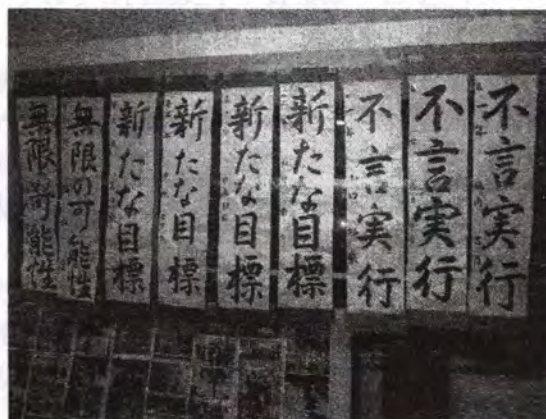 不言実行
不言実行
不言実行
新たな目標
新たな目標
新たな目標
新たな目標
無限の可能性
無限の可能性